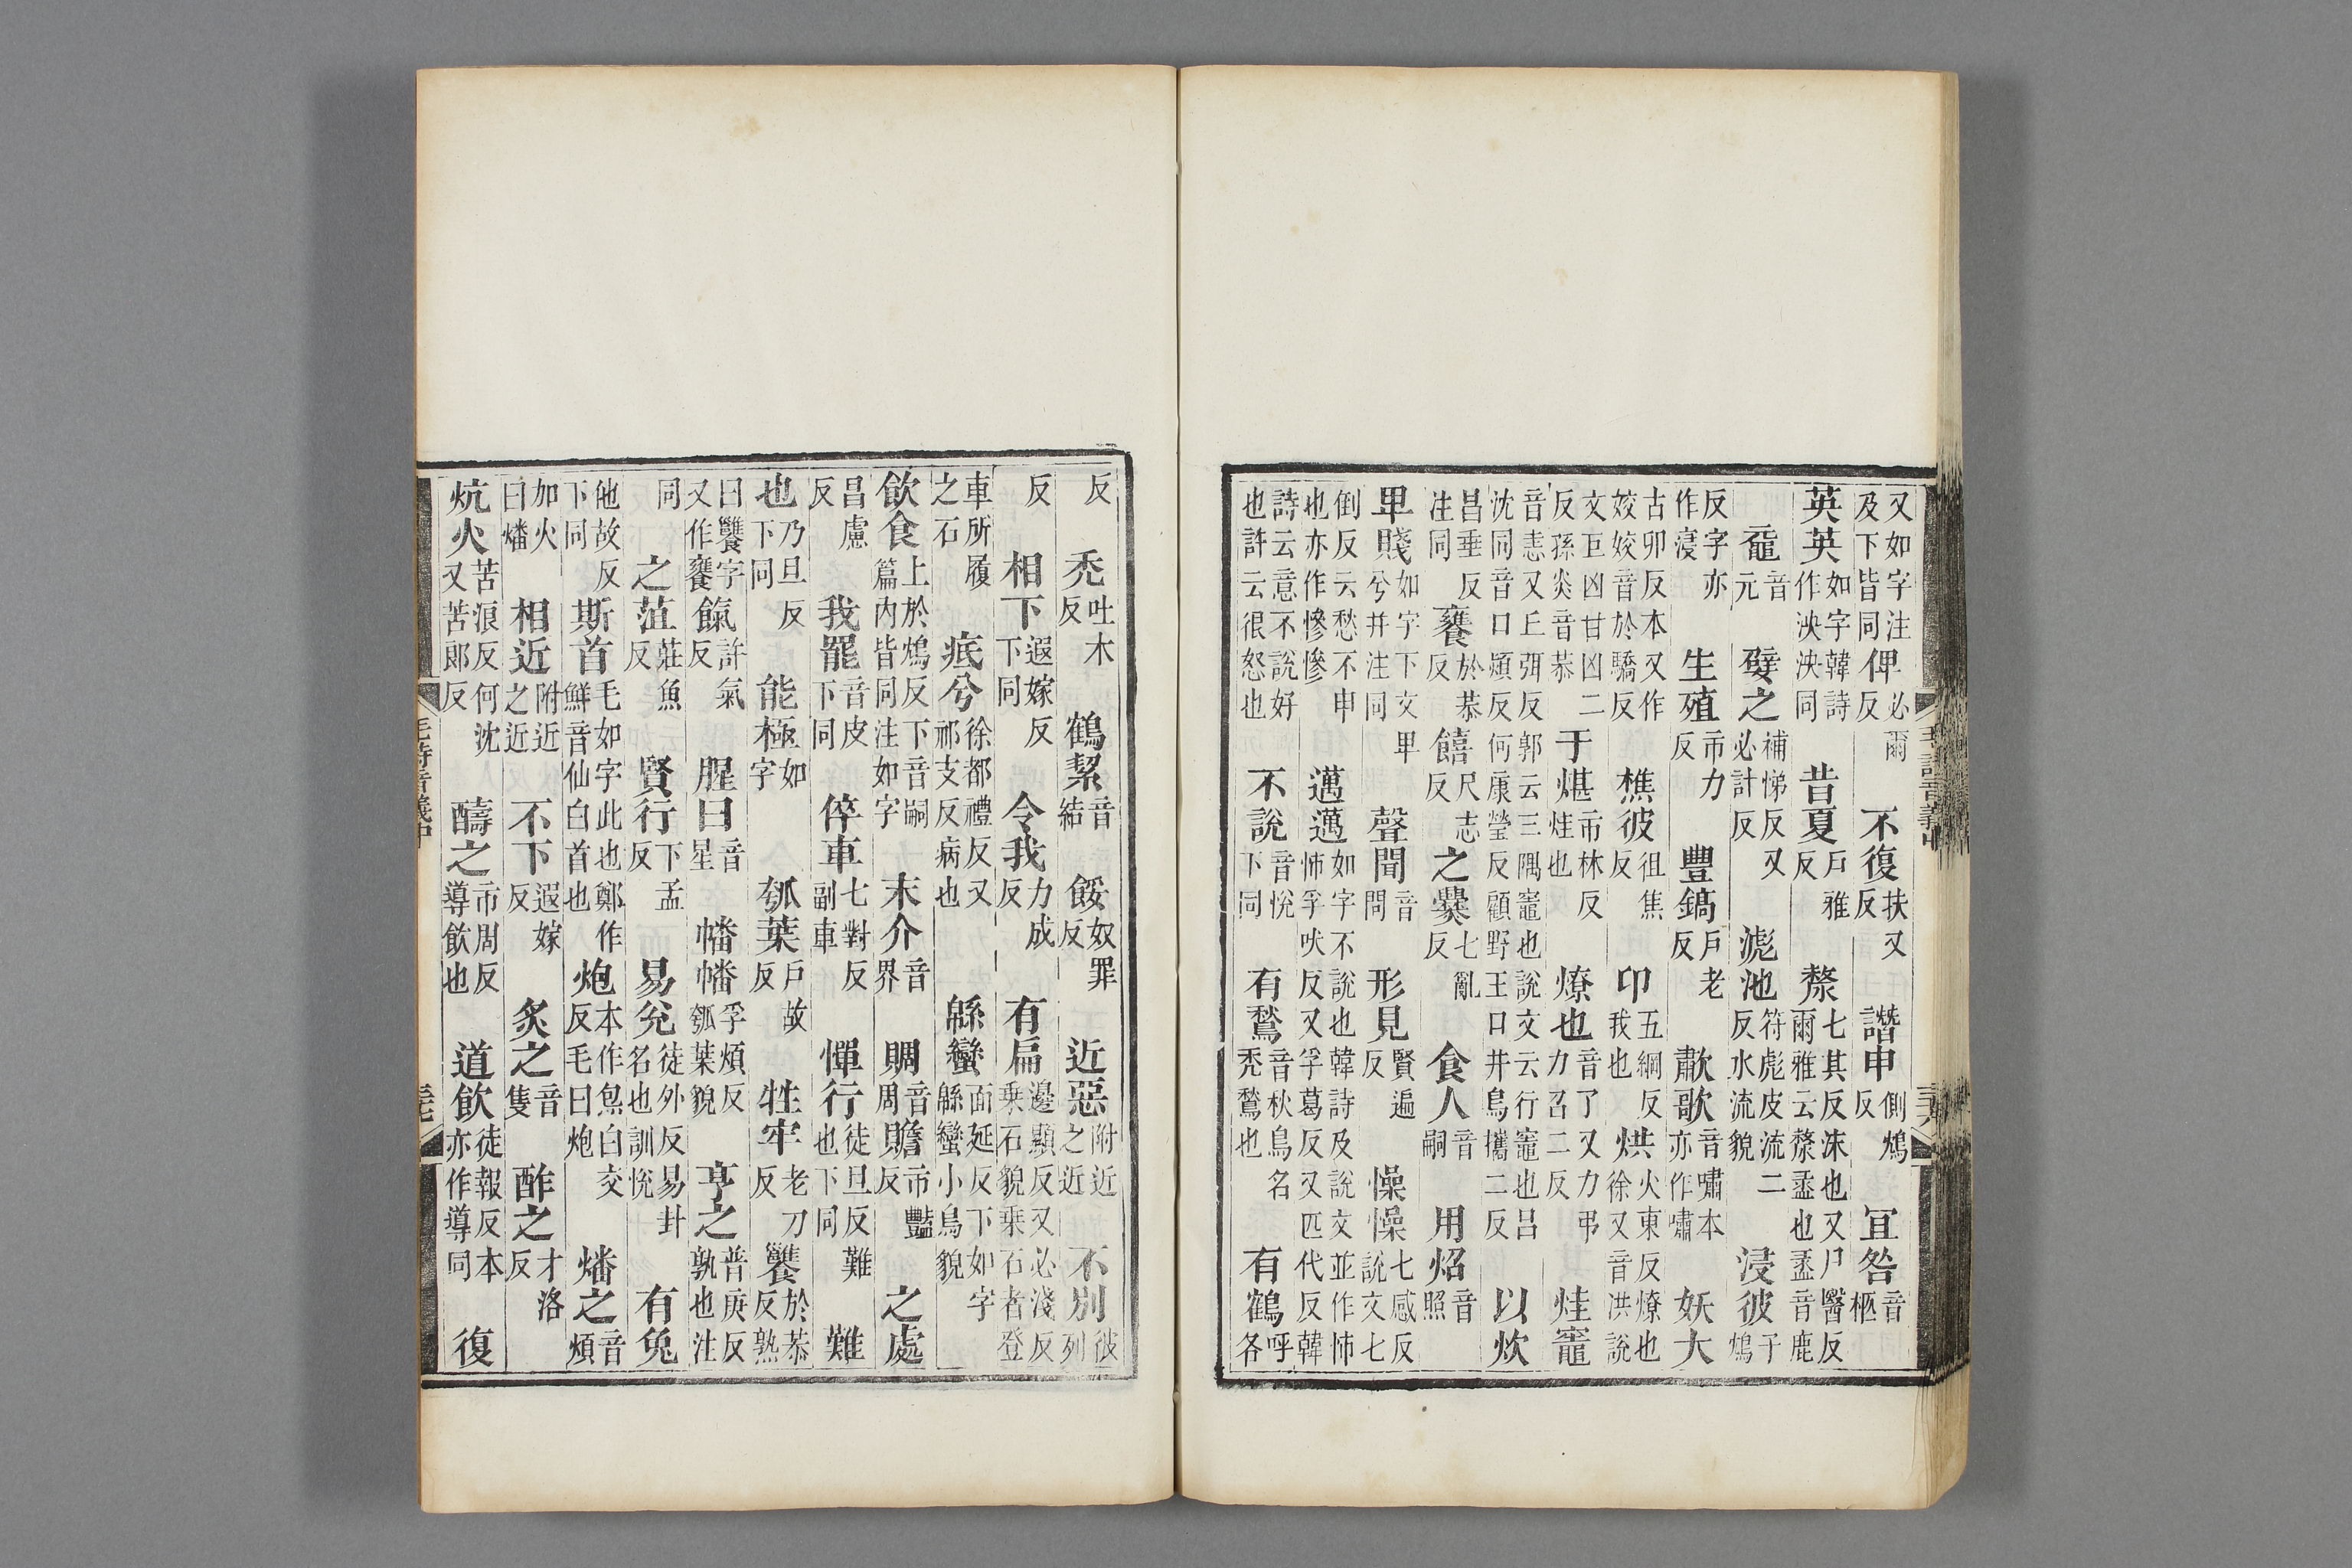 又如字注及下皆同俾必爾反不復扶又反譖申側鴆反冝咎音柩
英英如字韓詩作泱泱同昔夏戸雅反漦七其反沫也又尸醫反爾雅云漦盝也盝音鹿
黿音元嬖之補悌反又必計反滮池符彪皮流二反水流貌浸彼子鴆
反字亦作寖生殖市力反豐鎬戸老反歗歌音嘯本亦作嘯妖大
古卯反本又作姣姣音於驕反樵彼徂焦反卬五綱反我也烘火東反燎也徐又音洪說
文巨凶甘凶二反孫炎音恭于煁市林反烓也燎也音了又力弔力召二反烓竈
音恚又丘弭反郭云三隅竈也說文云行竈也呂沈同音口熲反何康瑩反顧野王口井烏攜二反以炊
昌垂反注同饔於恭反饎尺志反之爨七亂反食人音嗣用炤音照
卑賤如字下文卑兮并注同聲聞音問形見賢遍反懆懆七感反說文七
倒反云愁不申也亦作慘慘邁邁如字不說也韓詩及說文並作怖怖孚吠反又孚葛反又匹代反韓
詩云意不說好也許云很怒也不說音悅下同有鶖音秋鳥名禿鶖也有鶴呼各
毛詩音義中
反禿吐木反鶴絜音結餒奴罪反近惡附近之近不別彼列
反相下遐嫁反下同令我力成反有扁邊顯反又必淺反乗石貌乗石者登
車所履之石疧兮徐都禮反又祁支反病也緜蠻面延反下如字緜蠻小鳥貌
飲食上於鴆反下音嗣篇内皆同注如字末介音界賙音周贍市豔反之處
昌慮反我罷音皮下同倅車七對反副車憚行徒旦反難也下同難
也乃旦反下同能極如字瓠葉戸故反牲牢老刀反饔於恭反熟
曰饔字又作饔餼許氣反腥曰音星幡幡孚煩反瓠葉貌亨之普庚反孰也注
同之菹莊魚反賢行下孟反易兌徒外反易卦名也訓悅有兔
他故反下同斯首毛如字此也鄭作鮮音仙白首也炮本作炰白交反毛曰炮燔之音煩
加火曰燔相近附近之近不下遐嫁反炙之音隻酢之才洛反
炕火苦浪反何沈又苦郎反醻之市周反導飲也道飲徒報反本亦作導同復
毛詩音義中